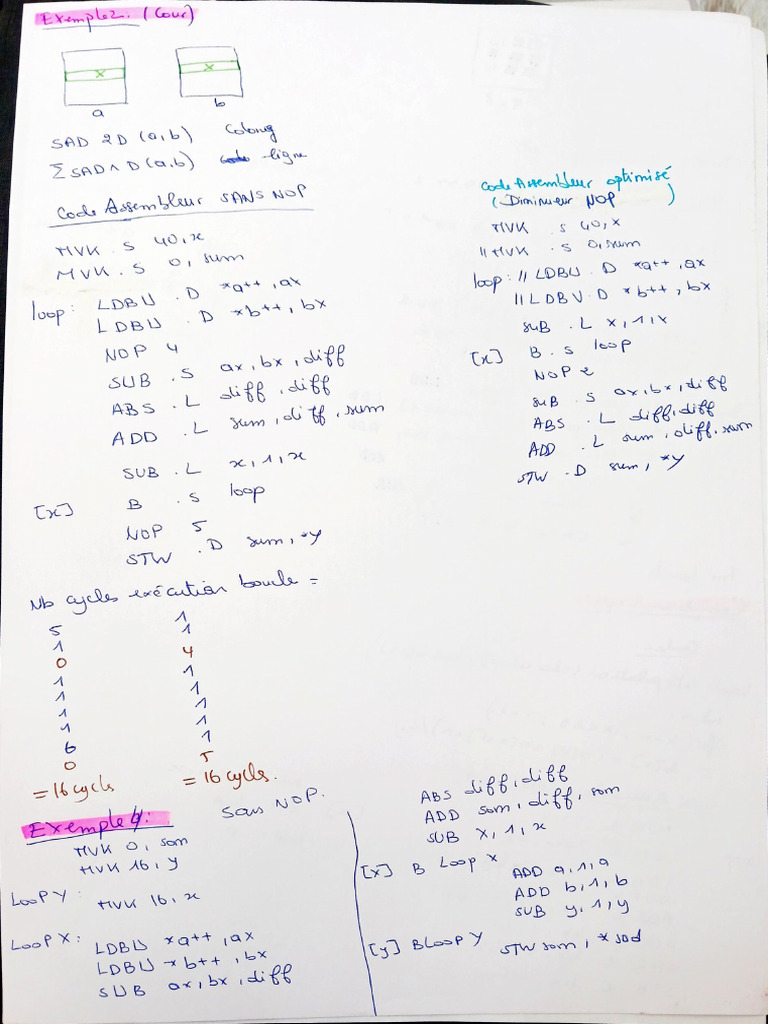 Exemple2: (Cour)
x
x
a
b
SAD 2D (a,b) Colong
Σ SAD 1 D (a,b) ligne
Code Assembleur SANS NOP
MVK .S 40, x
MVK .S 0, sum
loop: LDBU .D *a++, ax
LDBU .D *b++, bx
NOP 4
SUB .S ax, bx, diff
ABS .L diff, diff
ADD .L sum, diff, sum
SUB .L x, 1, x
[x] B .S loop
NOP 5
STW .D sum, *y
Code Assembleur optimisé
(Diminueur NOP )
MVK .S 40, x
// MVK .S 0, sum
loop: // LDBU .D *a++, ax
// LDBU .D *b++, bx
SUB .L x, 1, x
[x] B .S loop
NOP 2
SUB .S ax, bx, diff
ABS .L diff, diff
ADD .L sum, diff, sum
STW .D sum, *y
Nb cycles exécution boucle =
5 1
1 1
0 4
1 1
1 1
1 1
1 1
6 1
0 5
= 16 cycls = 16 cycls.
Exemple 4: Sans NOP.
MVK 0, som
MVK 16, y
LOOP Y: MVK 16, x
LOOP X: LDBU *a++, ax
LDBU *b++, bx
SUB ax, bx, diff
ABS diff, diff
ADD som, diff, som
SUB x, 1, x
[x] B Loop X
ADD a, 1, a
ADD b, 1, b
SUB y, 1, y
[y] B Loop Y
STW som, *sad